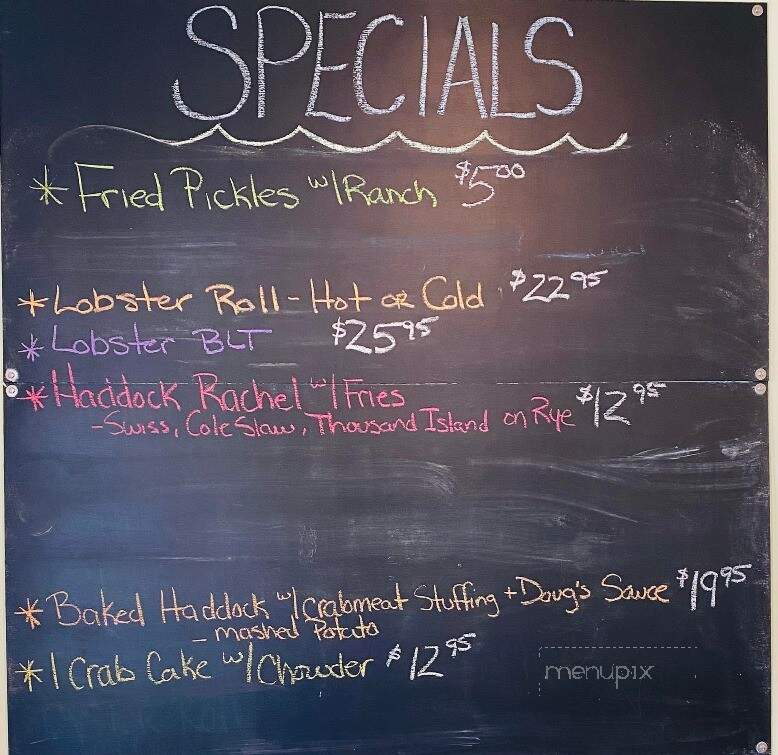 SPECIALS
* Fried Pickles w/ Ranch $5.00
* Lobster Roll - Hot or Cold $22.95
* Lobster BLT $25.95
* Haddock Rachel w/ Fries $12.95
- Swiss, Cole Slaw, Thousand Island on Rye
* Baked Haddock w/ crabmeat Stuffing + Doug's Sauce $19.95
- mashed Potato
* 1 Crab Cake w/ Chowder $12.95
menupix